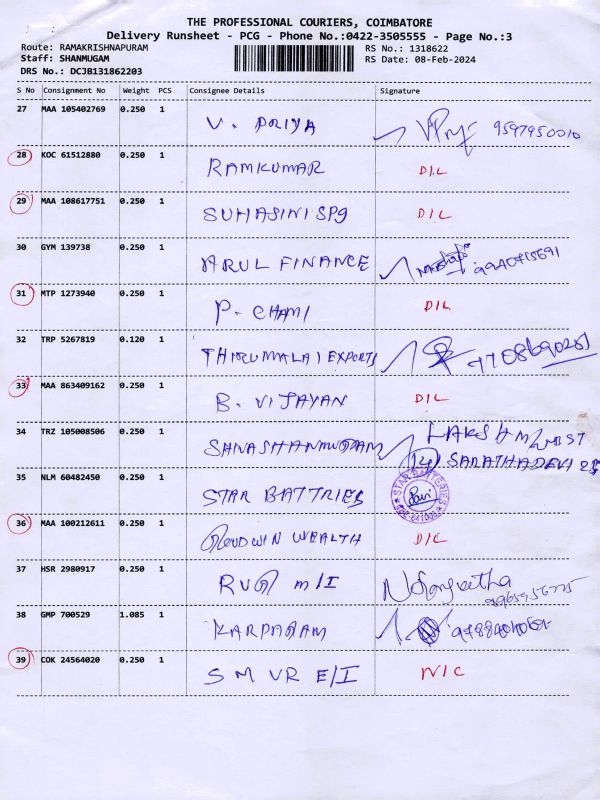 THE PROFESSIONAL COURIERS, COIMBATORE
Delivery Runsheet - PCG - Phone No.:0422-3505555 - Page No.:3
Route: RAMAKRISHNAPURAM RS No.: 1318622
Staff: SHANMUGAM RS Date: 08-Feb-2024
DRS No.: DCJB131862203
S No Consignment No Weight PCS Consignee Details Signature
27 MAA 105402769 0.250 1 V. PRIYA 9597950010
28 KOC 61512880 0.250 1 RAMKUMAR D/L
29 MAA 108617751 0.250 1 SUHASINI SPG D/L
30 GYM 139738 0.250 1 ARUL FINANCE 9940715691
31 MTP 1273940 0.250 1 P. CHAMI D/L
32 TRP 5267819 0.120 1 THIRUMALAI EXPORTS
33 MAA 863409162 0.250 1 B. VIJAYAN D/L
34 TRZ 105008506 0.250 1 SANASHANMUGAM
14 SARATHADEVI
35 NLM 60482450 0.250 1 STAR BATTRIES STAR BATTERIES
36 MAA 100212611 0.250 1 GOODWIN WEALTH D/L
37 HSR 2980917 0.250 1 RUG M/I Sangeetha
38 GMP 700529 1.085 1 KARPAGAM
39 COK 24564020 0.250 1 S M VR E/I N/C